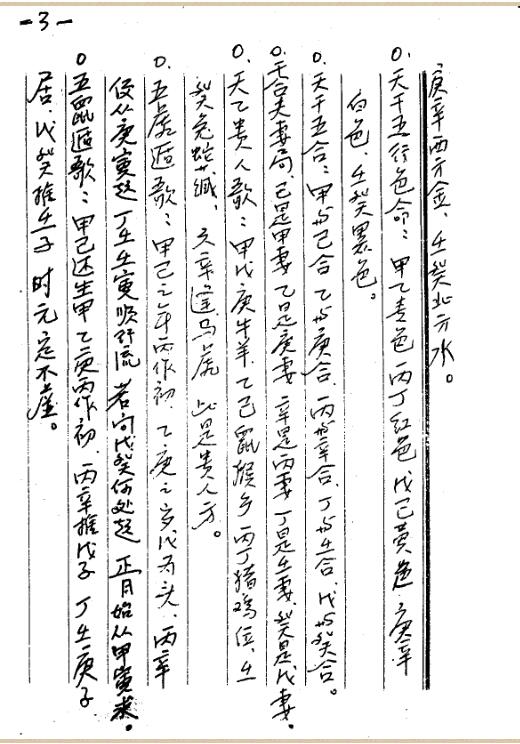 -3-
庚辛西方金、壬癸北方水。
0、天干五行色命：甲乙青色 丙丁红色 戊己黄色 庚辛
白色、壬癸黑色。
0、天干五合：甲与己合 乙与庚合、丙与辛合、丁与壬合、戊与癸合。
0、干合夫妻局、己是甲妻 乙是庚妻 辛是丙妻 丁是壬妻、癸是戊妻。
0、天乙贵人歌：甲戊庚牛羊、乙己鼠猴乡 丙丁猪鸡位、壬
癸兔蛇藏、六辛逢马虎 此是贵人方。
0、五虎遁歌：甲己之年丙作初、乙庚之岁戊为头、丙辛
便从庚寅起 丁壬壬寅顺行流 若问戊癸何处起 正月始从甲寅求。
0 五鼠遁歌：甲己还生甲 乙庚丙作初、丙辛推戊子 丁壬庚子
居、戊癸推壬子 时元定不虚。